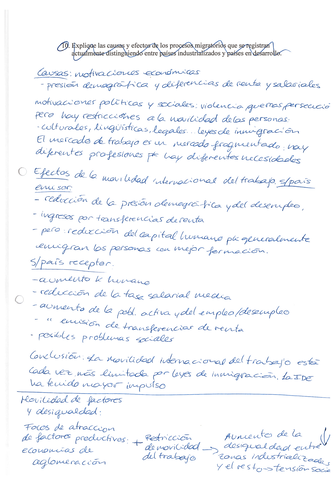 10. Explique las causas y efectos de los procesos migratorios que se registran
actualmente distinguiendo entre países industrializados y países en desarrollo.
Causas: motivaciones económicas
- presión demográfica y diferencias de renta y salariales
motivaciones políticas y sociales: violencia, guerras, persecución
pero hay restricciones a la movilidad de las personas
- culturales, lingüísticas, legales... leyes de inmigración
El mercado de trabajo es un mercado fragmentado: hay
diferentes profesiones pk hay diferentes necesidades
Efectos de la movilidad internacional del trabajo s/país
emisor:
- reducción de la presión demográfica y del desempleo.
- ingresos por transferencias de renta
- pero: reducción del capital humano pk generalmente
emigran las personas con mejor formación.
s/país receptor.
- aumento k humano
- reducción de la tasa salarial media
- aumento de la pobl. activa y del empleo/desempleo
- " emisión de transferencias de renta
- posibles problemas sociales
Conclusión: La movilidad internacional del trabajo está
cada vez más limitada por leyes de inmigración. La IDE
ha tenido mayor impulso
Movilidad de factores
y desigualdad:
Focos de atracción
de factores productivos:
economías de
aglomeración
+ Restricción
de movilidad
del trabajo
→ Aumento de la
desigualdad entre
zonas industrializadas
y el resto → tensión social